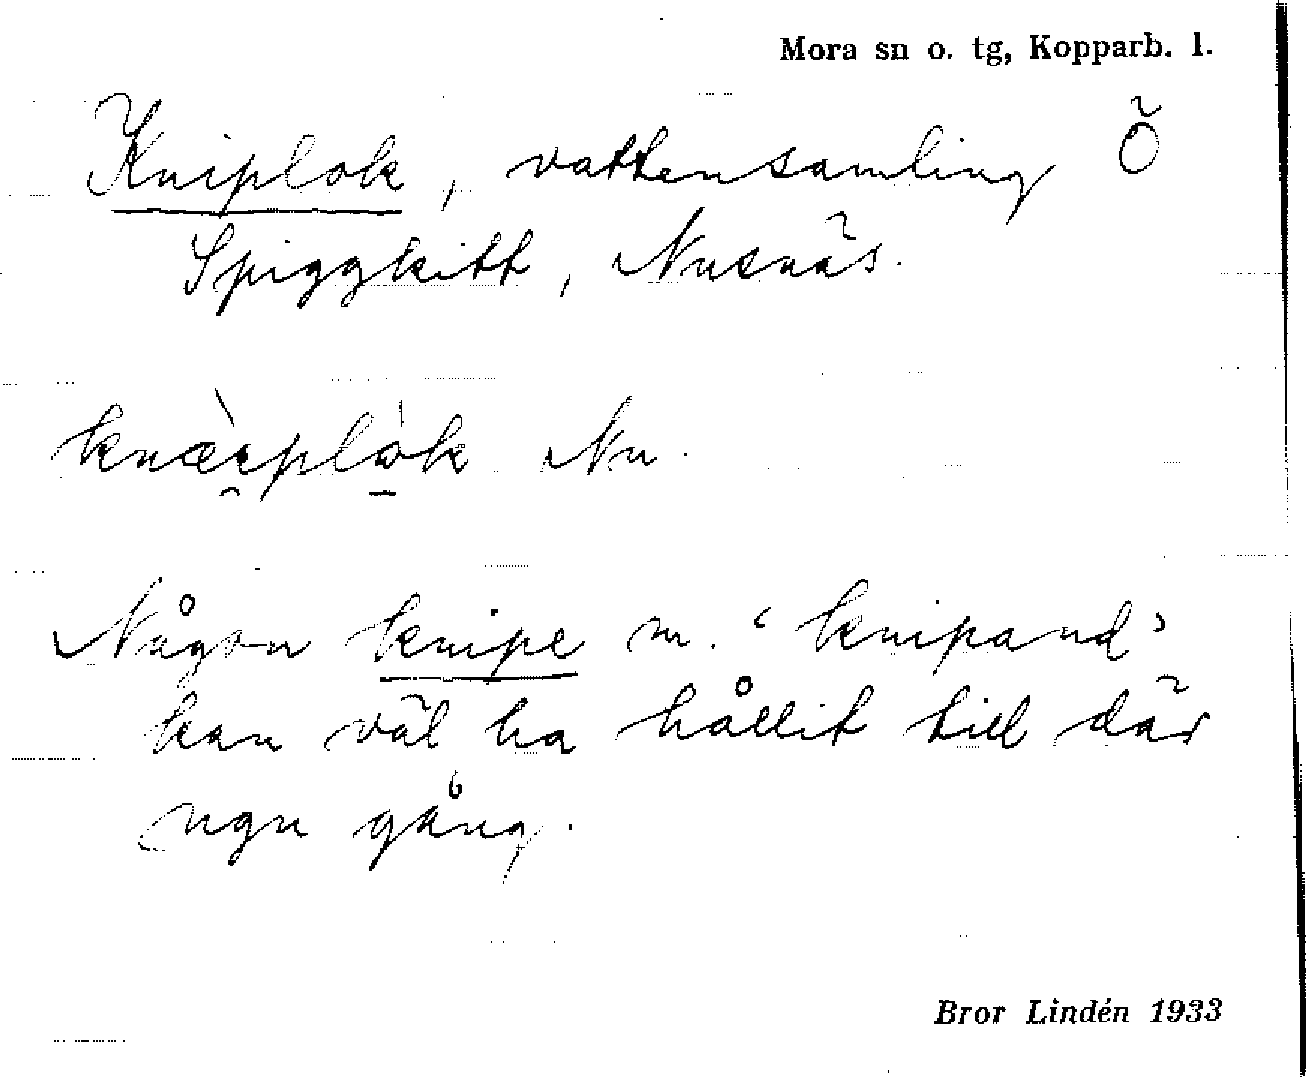 Mora sn o. tg, Kopparb. l.
Kniplok, vattensamling Ö
Spiggkitt, Nusnäs.
Nu.
Någon knipe m. ‘knipand’
kan väl ha hållit till där
ngn gång.
Bror Lindén 1933